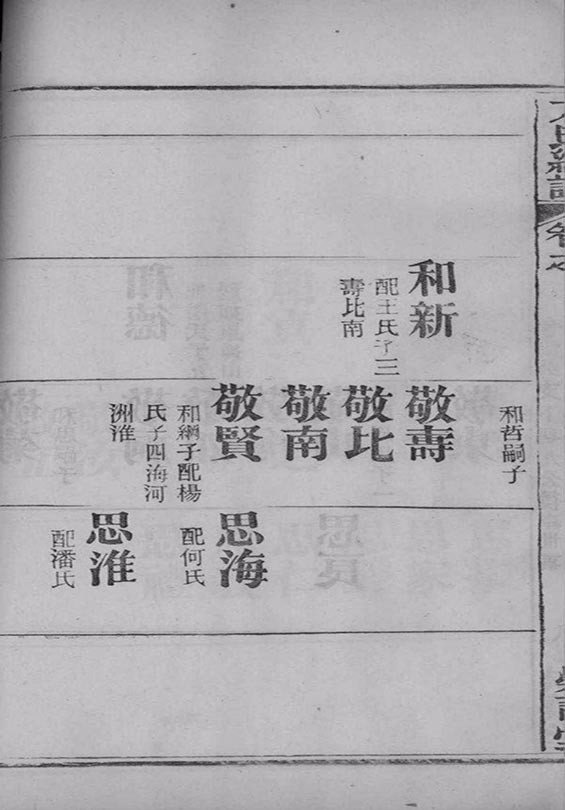 和哲嗣子
和新
配王氏子三
壽比南
敬壽
敬比
敬南
敬賢
和綱子配楊
氏子四海河
洲淮
思海
配何氏
思淮
配潘氏